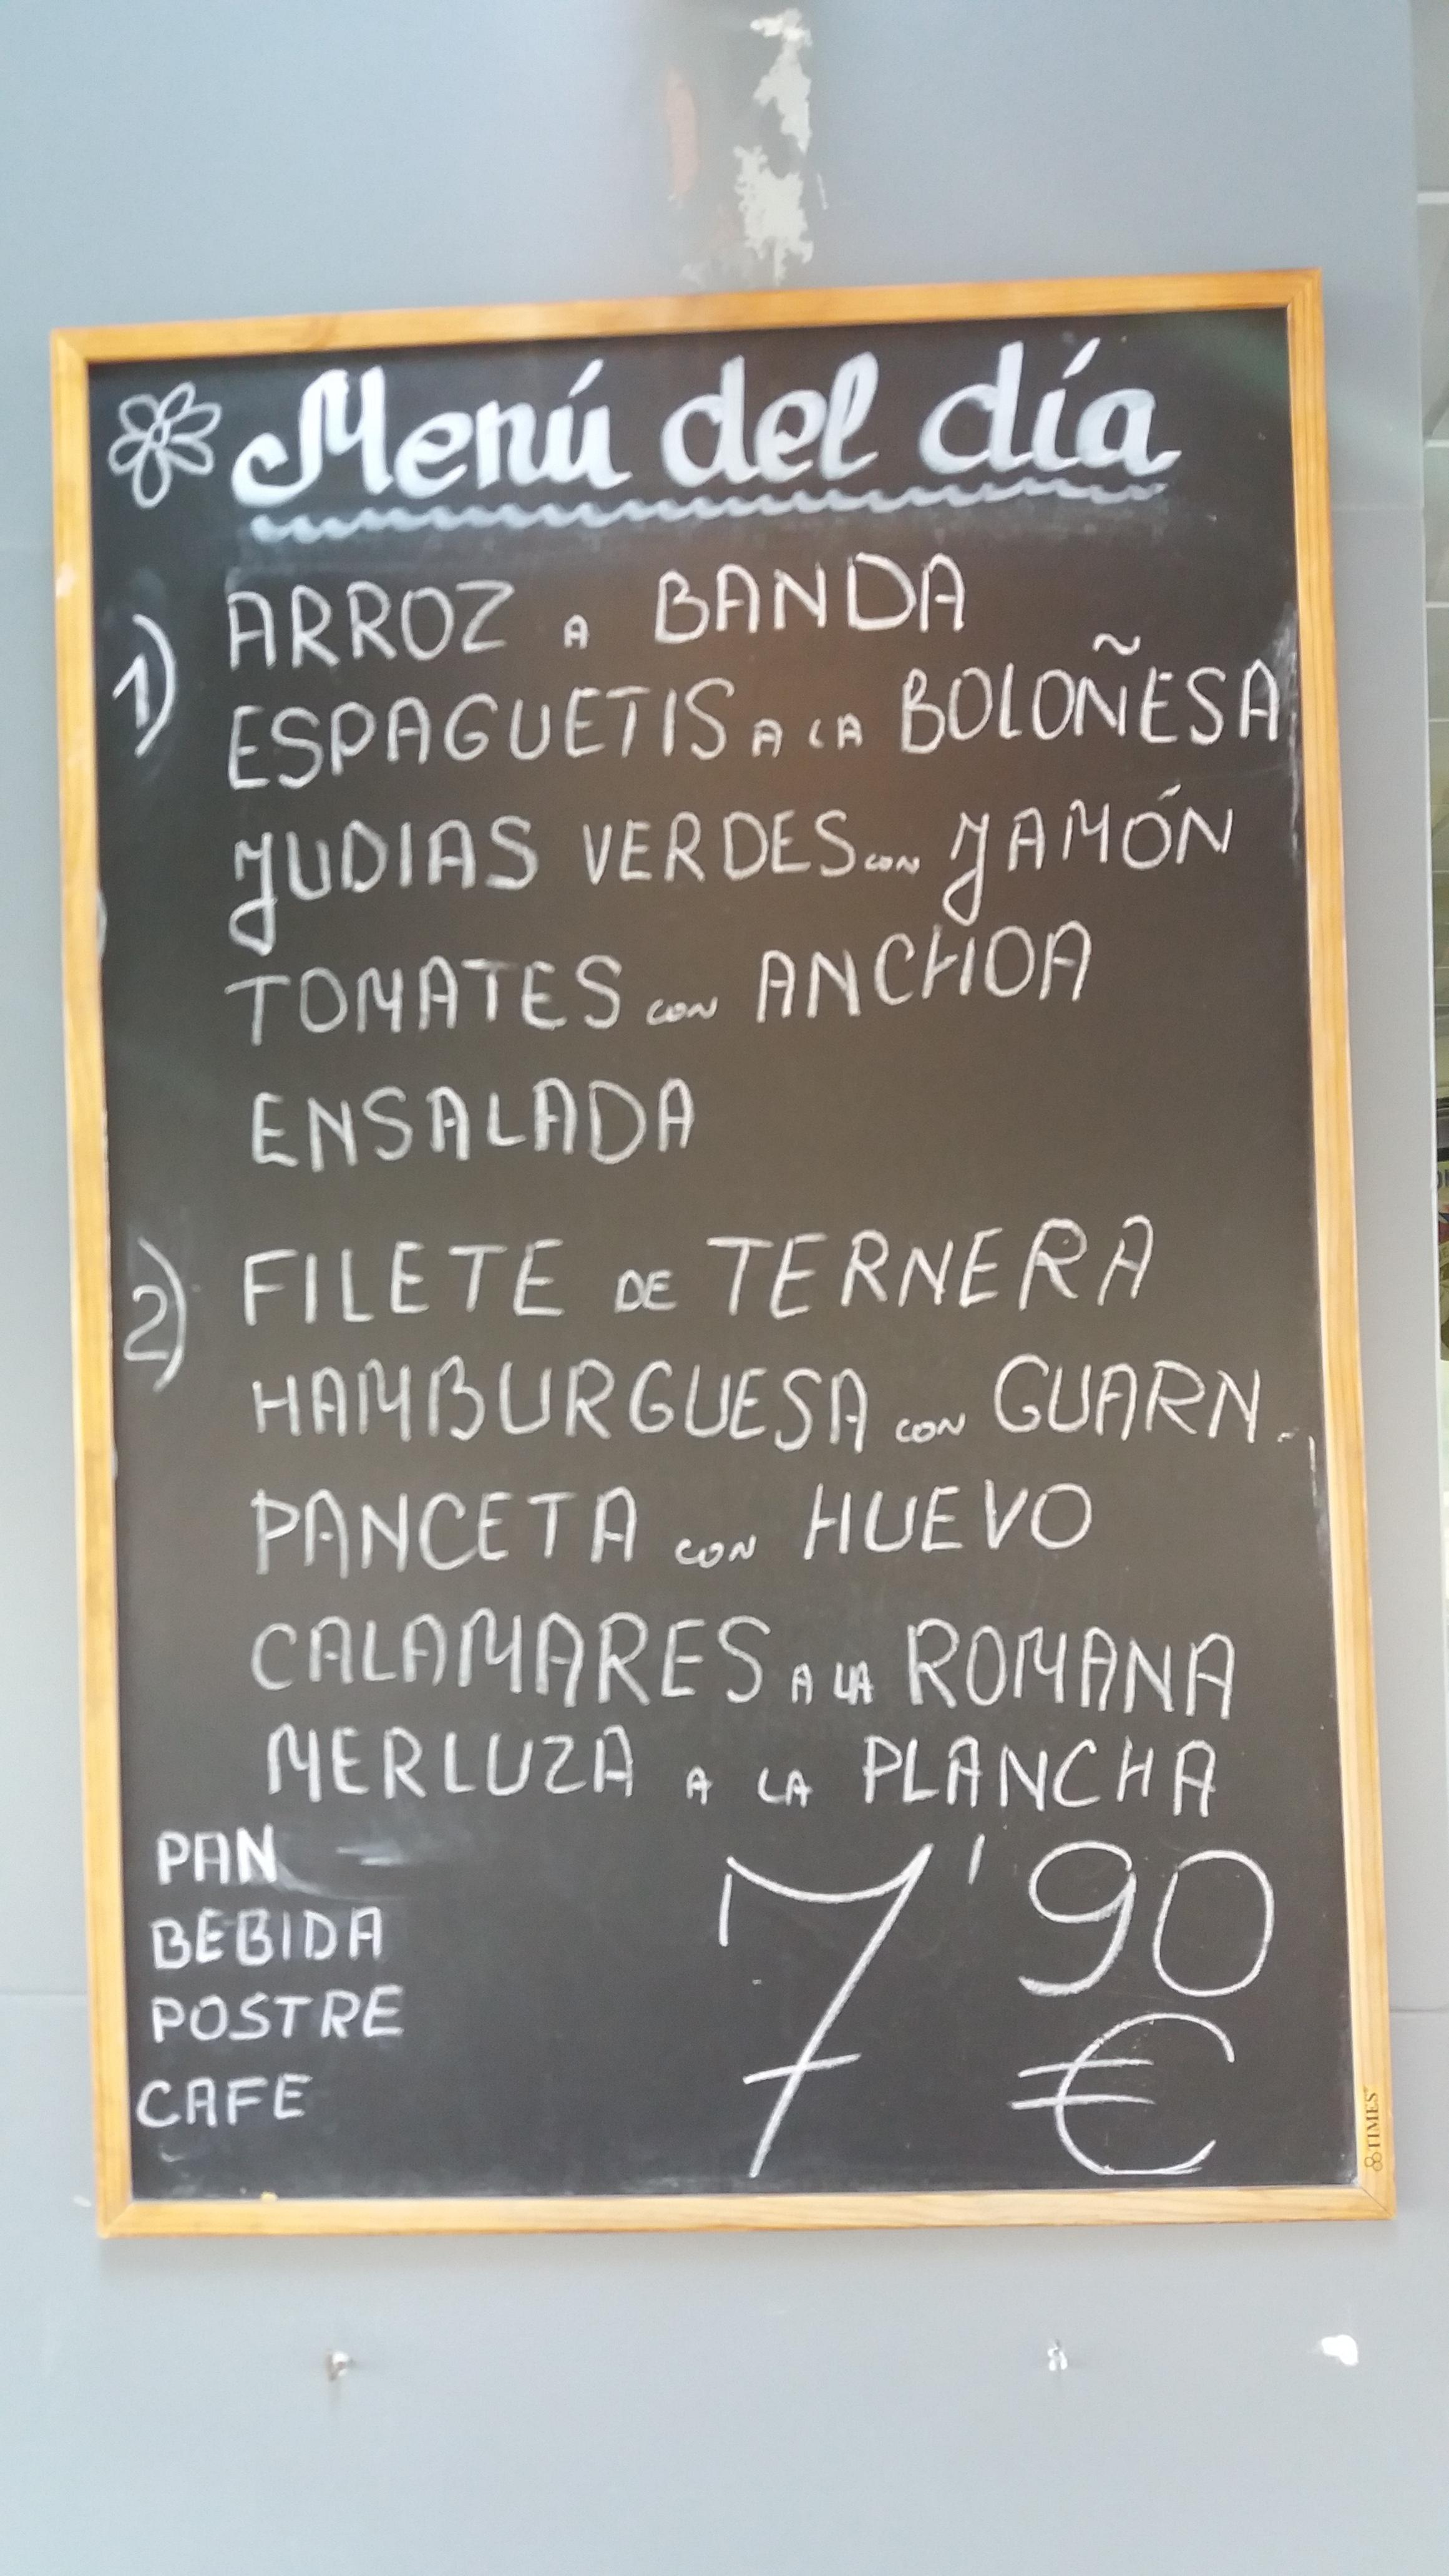 Menú del día
1) ARROZ A BANDA
ESPAGUETIS A LA BOLOÑESA
JUDIAS VERDES CON JAMÓN
TOMATES CON ANCHOA
ENSALADA
2) FILETE DE TERNERA
HAMBURGUESA CON GUARN.
PANCETA CON HUEVO
CALAMARES A LA ROMANA
MERLUZA A LA PLANCHA
PAN
BEBIDA
POSTRE
CAFE
7'90
€
TIMES